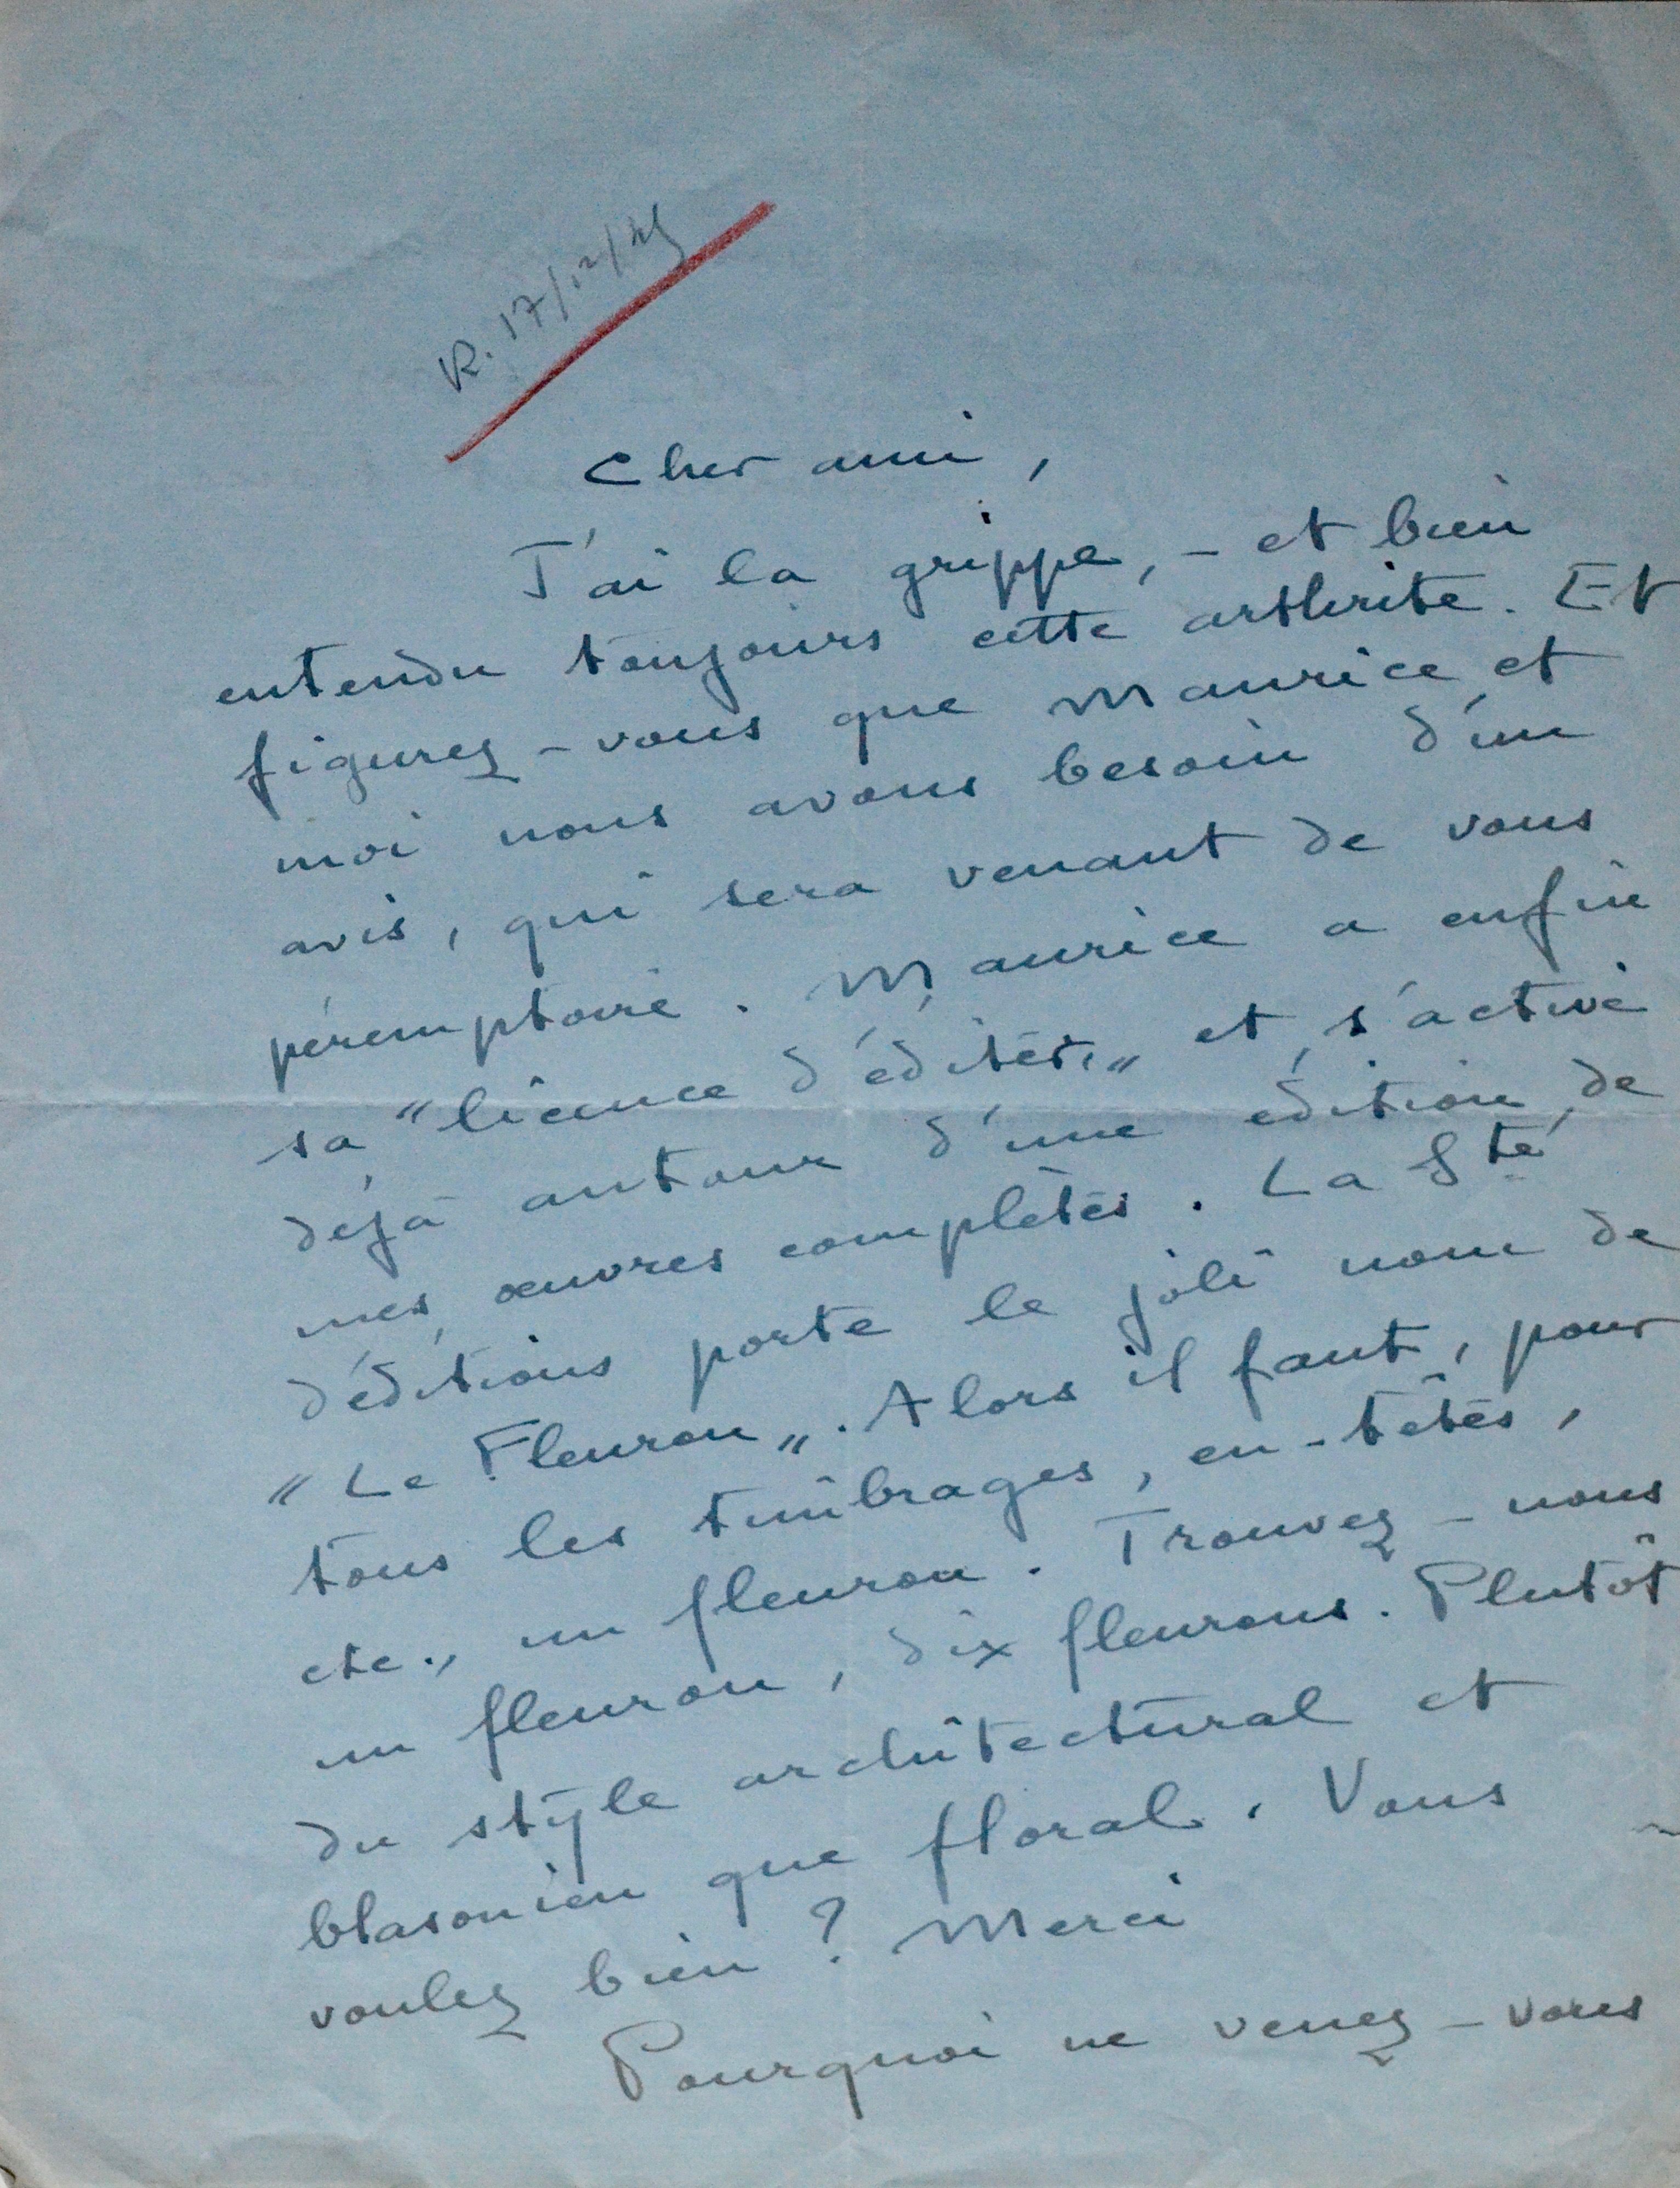 R. 17/12/45
Cher ami,
J'ai la grippe, - et bien
entendu toujours cette arthrite. Et
figurez-vous que Maurice et
moi nous avons besoin d'un
avis, qui sera venant de vous
péremptoire. Maurice a enfin
sa "licence d'éditer," et s'active
déjà autour d'une édition de
mes œuvres complètes. La Sté
d'éditions porte le joli nom de
"Le Fleuron". Alors il faut, pour
tous les timbrages, en-têtes,
etc., un fleuron. Trouvez-nous
un fleuron, dix fleurons. Plutôt
du style architectural et
blasonien que floral. Vous
voulez bien ? Merci
Pourquoi ne venez-vous